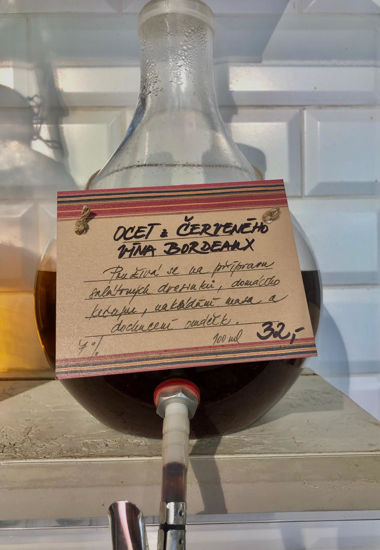 OCET z ČERVENÉHO
VÍNA BORDEAUX
Používá se na přípravu
salátových dresinků, domácího
kečupu, nakládání masa a
dochucení omáček.
100 ml 32,-